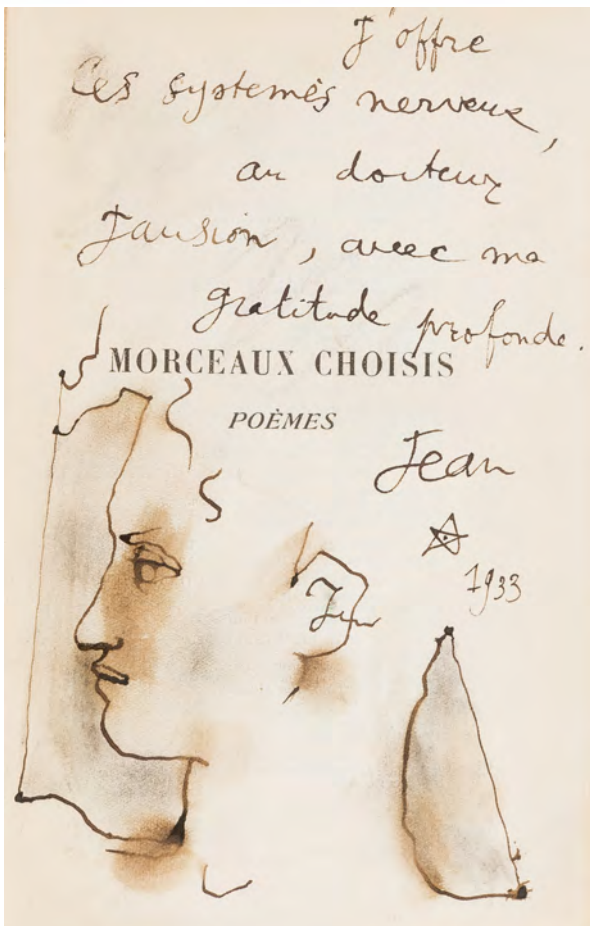 J'offre
ces systemès nerveux,
au docteur
Jausion, avec ma
gratitude profonde.
MORCEAUX CHOISIS
POÈMES
Jean
1933